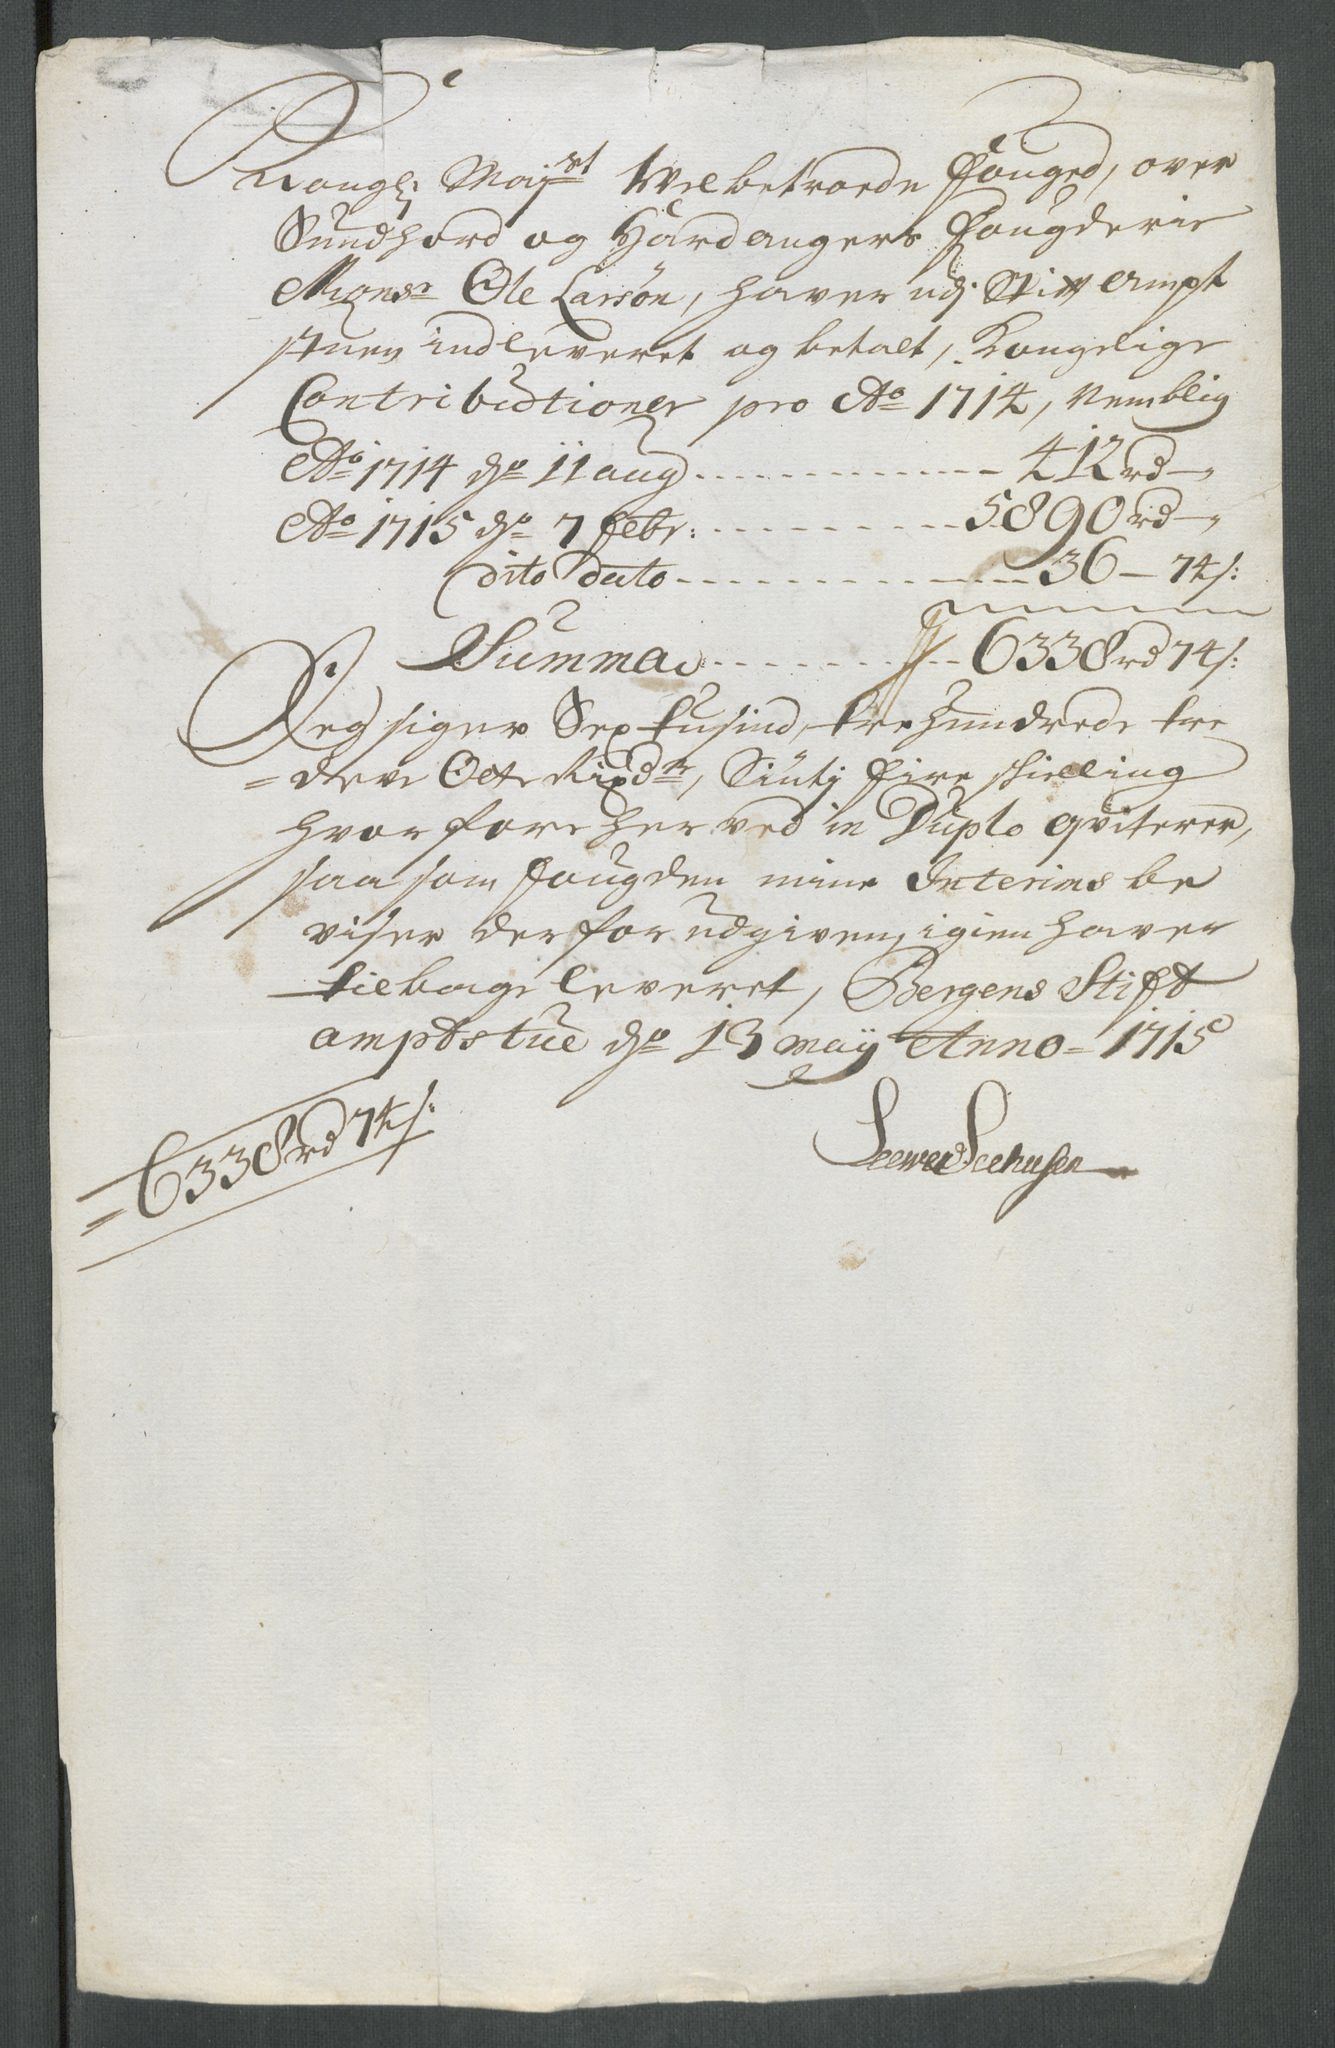 Kongl: Maj:st Welbetroede Fouged, over
Sundhord og Hardangers Fougderie
Monsr Ole Larsön, haver udj Stift Ampt
stuen indleveret og betalt, Kongelige
Contributioner pro Ao 1714, Nemblig
Ao 1714 do 11 aug .......... 412 rd —,
Ao 1715 do 7 febr: .......... 5890 rd —,
dito dato .......... 36 — 74 s:
Summa .......... 6338 rd 74 s:
Jeg siger Sex tusind, tre hundrede tre
= deve Otte Rixdr, Siutj fire skielling
hvorfore her ved in Duplo qviterer,
saa som fougden mine Interims be
viser derfor udgiven, igien haver
tilbage leveret, Bergens Stift
amptstue do 13 maij Anno = 1715
= 6338 rd 74 s:
Seehusen